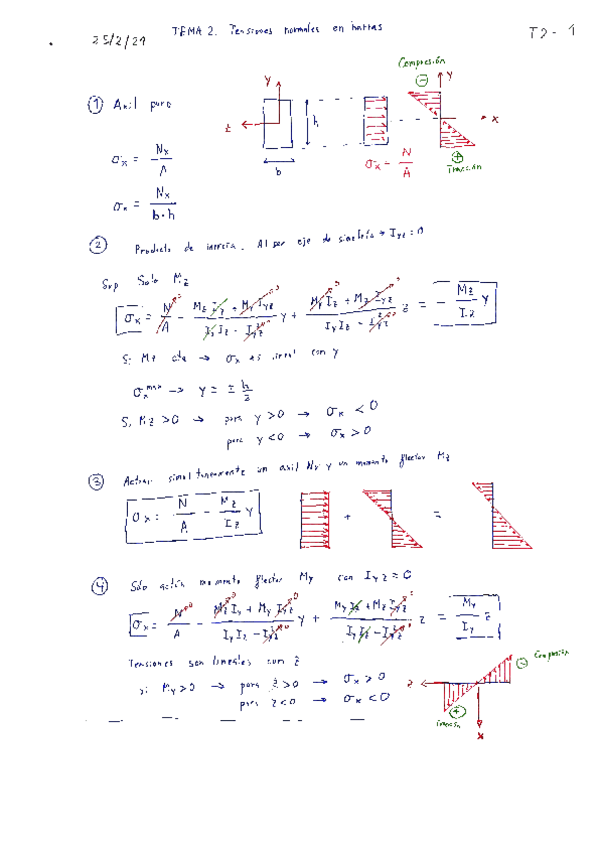 25/2/21
TEMA 2. Tensiones normales en barras
T2-1
Compresión
⊖
y
① Axil puro
y
z
h
b
x
⊕
Tracción
σx = N/A
σx = Nx/A
σx = Nx/b·h
② Producto de inercia. Al ser eje de simetría → Iyz = 0
Sup Solo Mz
σx = N/A - (Mz Iy + My Iyz)/(Iy Iz - Iyz²) y + (My Iz + Mz Iyz)/(Iy Iz - Iyz²) z = - Mz/Iz y
Si Mz cte → σx es lineal con y
σx max → y = ± h/2
Si Mz > 0 → para y > 0 → σx < 0
para y < 0 → σx > 0
③ Actúan simultáneamente un axil Nx y un momento flector Mz
σx = N/A - Mz/Iz y
+ =
④ Sólo actúa momento flector My con Iyz = 0
σx = N/A - (Mz Iy + My Iyz)/(Iy Iz - Iyz²) y + (My Iz + Mz Iyz)/(Iy Iz - Iyz²) z = My/Iy z
Tensiones son lineales con z
si My > 0 → para z > 0 → σx > 0
para z < 0 → σx < 0
z
⊖ Compresión
⊕
Tracción
x